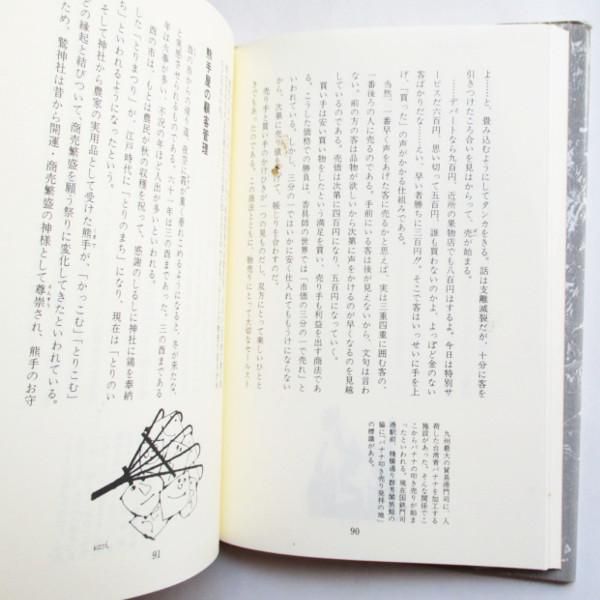 よ……と、畳み込むようにしてタンカをきる。話は支離滅裂だが、十分に客を
引きつけたころ合いを見はからって、売が始まる。
……デパートなら九百円、近所の果物店でも八百円はするよ。今日は特別サ
ービスだ六百円、思い切って五百円、誰も買わないのかよ、よっぽど金のない
客ばかりだな……えい、早い者勝ちに三百円!!。そこで客はいっせいに手を上
げ、「買った」の声がかかる仕組みである。
当然、一番早く声をあげた客に売るかと思えば、実は三重四重の客の囲の、
一番後ろの人に売るのである。手前にいる客は後が見えないから、文句は言わ
ない。前の方の客は品物が欲しいから次第に声をかけるのが早くなるのを見越
しているのである。売価は次第に四百円になり、五百円になっていく。
買い手は安い買い物をしたという満足を買い、売り手も利益を出す商法であ
る。こうした価格での勝負は、香具師の世界では「市価の三分の一で売れ」と
いわれている。しかし、三分の一ではいかに安く仕入れてももうけにならない
から、次第に売り値を上げて、帳じりを合わすのだ。
売り手と買い手のかけひきが一つの見ものだし、双方にとって楽しいひとと
きでもあった。この商法とともに、物売りにとって大切なセールスト
九州最大の貿易港門司に、入
荷した台湾青バナナを加工する
施設があった。そんな関係でこ
こからバナナの叩き売りが始ま
ったといわれる。現在国鉄門司
港駅前、桟橋通り群芳閣旅館の
脇に、「バナナ叩き売り発祥の地」
の標識がある。
90
熊手屋の顧客管理
酉の市からの帰り道、夜空に霜が重く垂れこめるようになると、冬が来たな、
と実感させられるものである。六十一年は三の酉まであった。三の酉まである
年は火事が多い、不況の年ほど人出が多いといわれる。
酉の市は、もとは農民が秋の収穫を祝って、感謝のしるしに神社に鶏を奉納
した「とりまつり」が、江戸時代に「とりのまち」になり、現在は「とりのい
ち」といわれるようになったという。
そして神社から農家の実用品として受けた熊手が、「かっこむ」「とりこむ」
どの縁起と結びついて、商売繁盛を願う祭りに変化してきたといわれている。
ため、鷲神社は昔から開運・商売繁盛の神様として尊崇され、熊手のお守
91